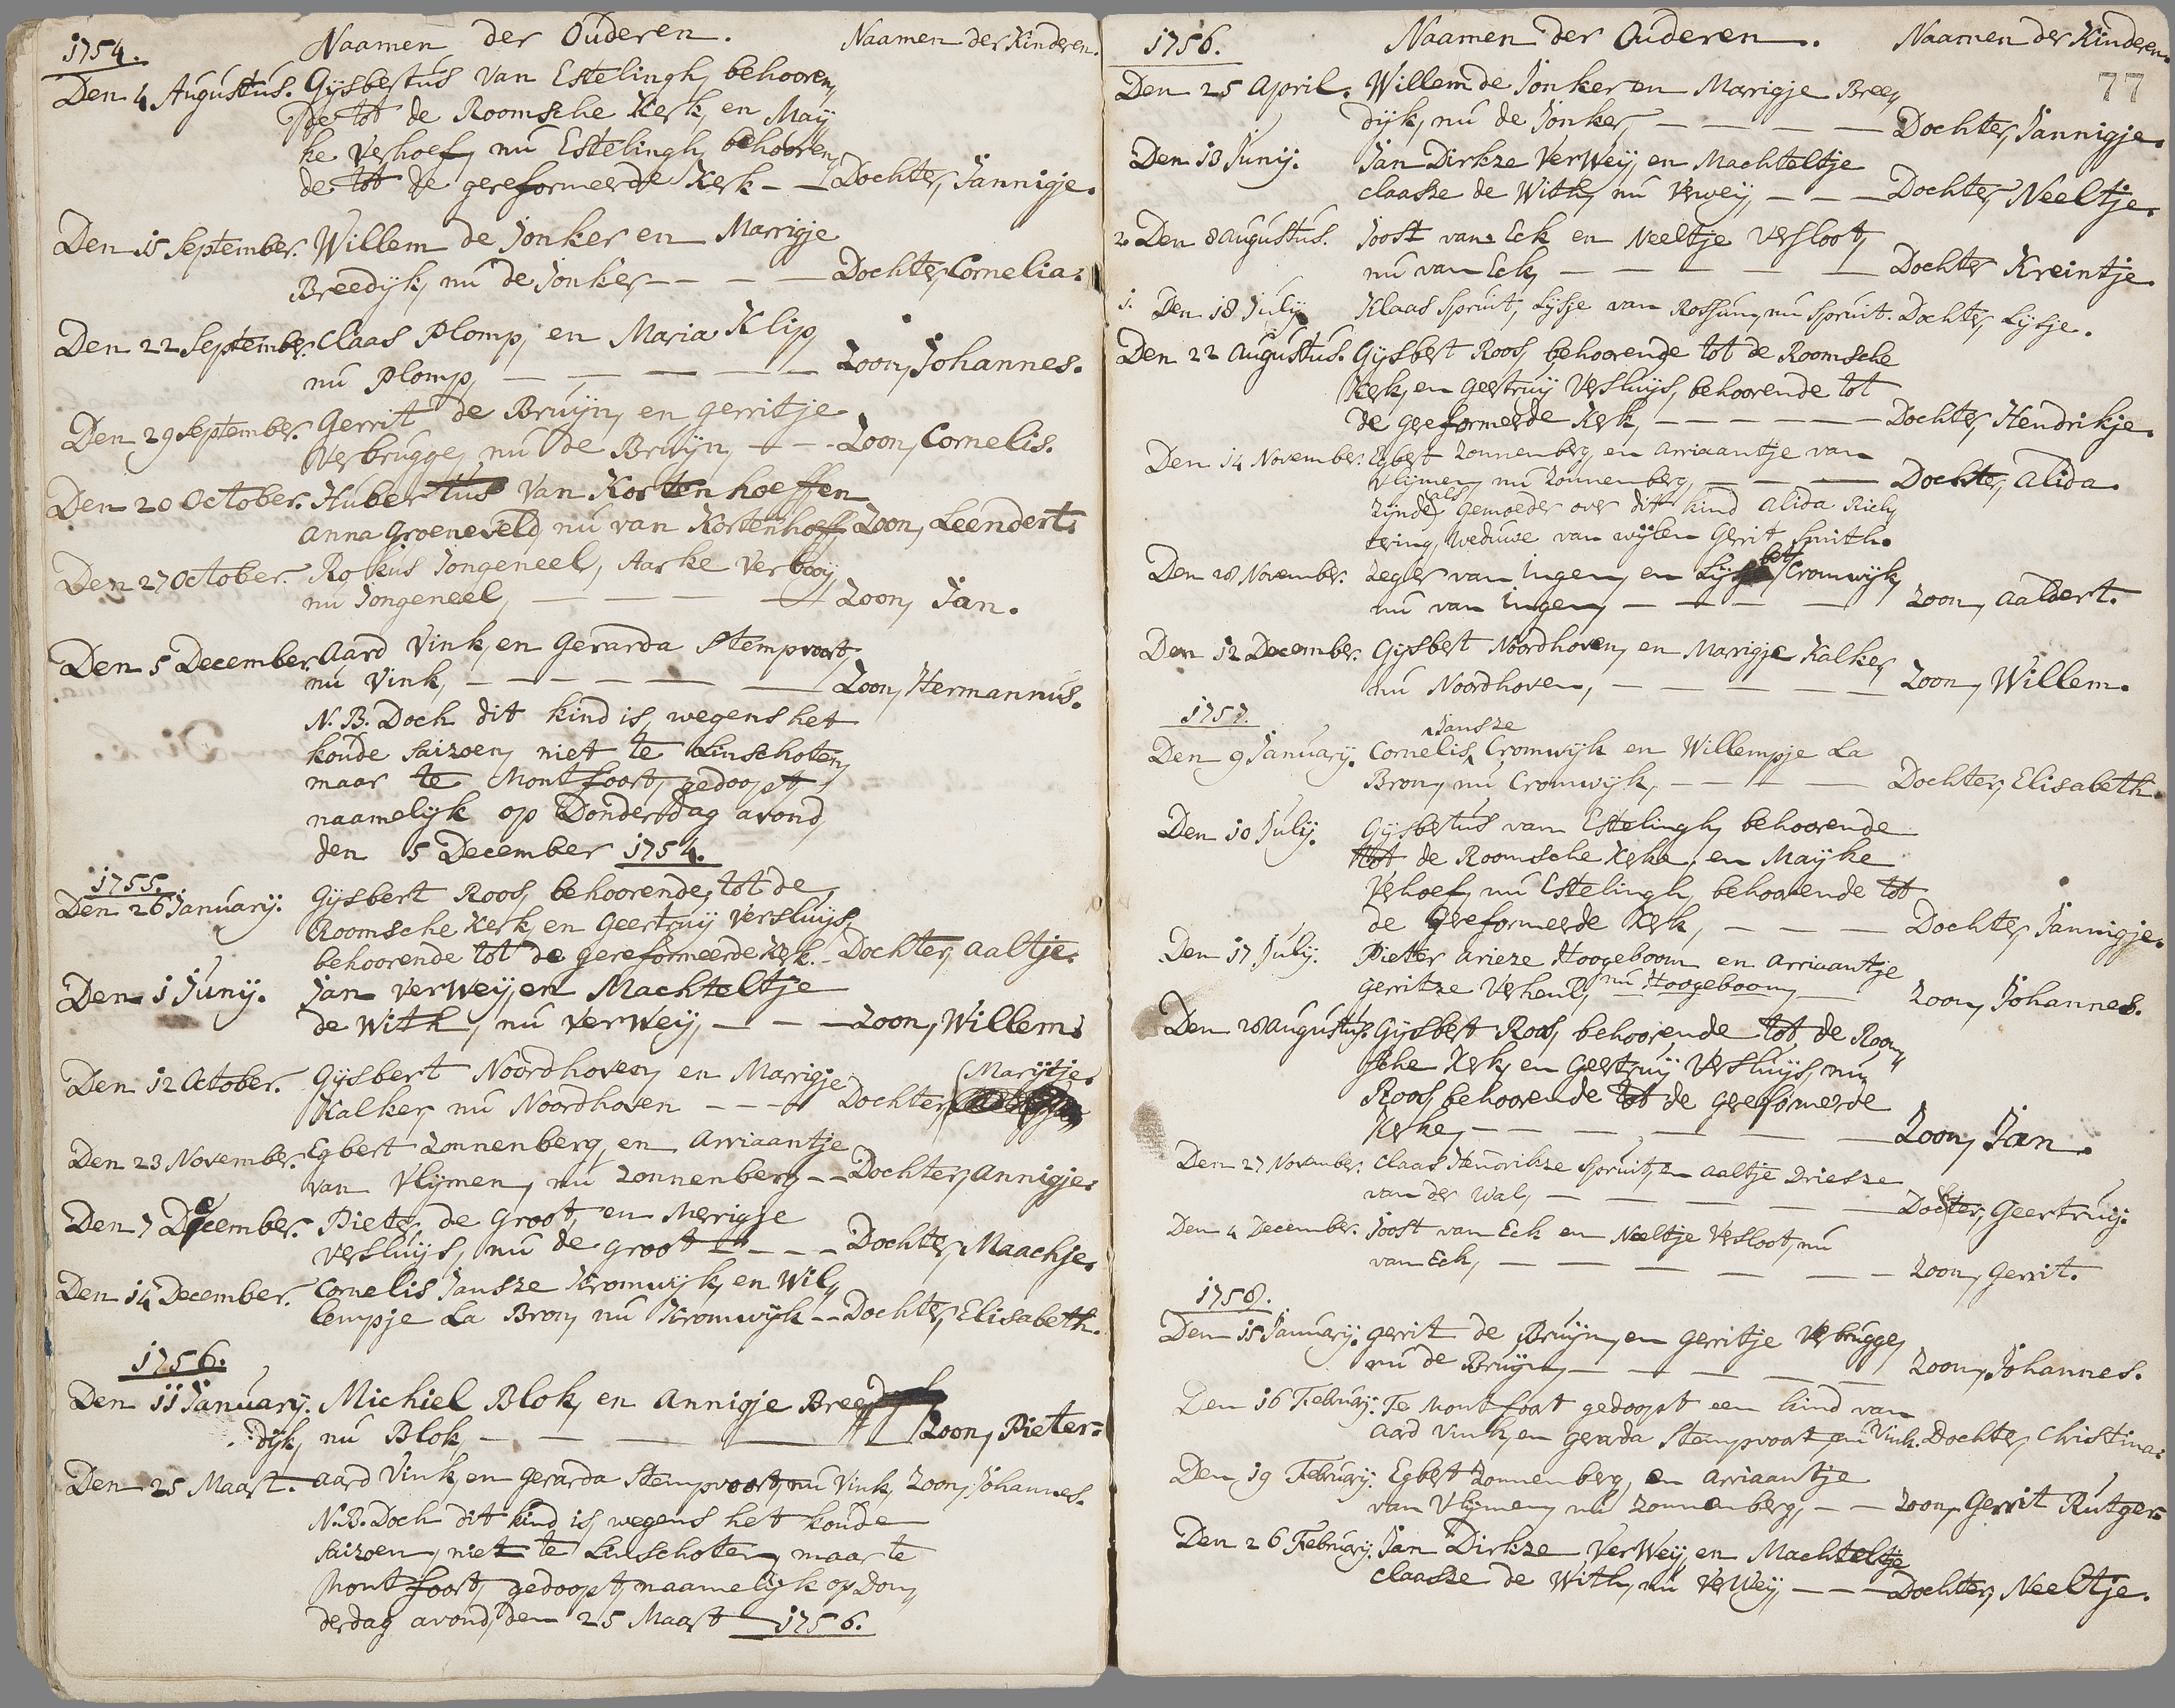 1754.
Naamen der Ouderen.
Naamen der Kinderen.
Den 4 Augustus. Gijsbertus van Estelingh, behooren,
de tot de Roomsche Kerk, en May,
ke Verhoef, nu Estelingh, behooren,
de tot de gereformeerde Kerk - - Dochter, Jannigje.
Den 15 September. Willem de Jonker en Marrigje
Breedijk, nu de Jonker, - - - Dochter, Cornelia.
Den 22 September. Claas Plomp, en Maria Klip,
nu Plomp, - - - - - Zoon, Johannes.
Den 29 September. Gerrit de Bruijn, en Gerritje
Verbrugge, nu de Bruijn, - - - Zoon, Cornelis.
Den 20 October. Hubertus van Kortenhoeffen
Anna Groeneveld, nu van Kortenhoeff Zoon, Leendert.
Den 27 October. Rokus Jongeneel, Aarke Verbooij,
nu Jongeneel, - - - - Zoon, Jan.
Den 5 December. Aard Vink, en Gerarda Stempvoort,
nu Vink, - - - - - - Zoon, Hermannus.
N.B. Doch dit kind is, wegens het
koude saizoen, niet te Linschoten,
maar te Montfoort, gedoopt,
naamelijk op Donderdag avond,
den 5 December 1754.
1755.
Den 26 January. Gijsbert Roos, behoorende, tot de
Roomsche Kerk, en Geertruij Versluijs,
behoorende tot de gereformeerde Kerk. - Dochter, Aaltje.
Den 1 Junij. Jan VerWeij, en Machteltje
de With, nu VerWeij, - - - Zoon, Willem.
Den 12 October. Gijsbert Noordhoven, en Marrigje (Marijtje.
Kalker, nu Noordhoven - - - Dochter,
Den 23 November. Egbert Zonnenberg, en Arriaantje
van Vlijmen, nu Zonnenberg - - Dochter, Annigje.
Den 7 December. Pieter de Groot, en Merrigje
Versluijs, nu de Groot - - - - Dochter, Maachje.
Den 14 December. Cornelis Jansze Kromwijk, en Wil,
lempje La Bron, nu Kromwijk - - Dochter, Elisabeth.
1756.
Den 11 January. Michiel Blok, en Annigje Breed
dijk, nu Blok, - - - - - Zoon, Pieter.
Den 25 Maart. Aard Vink, en Gerarda Stempvoort, nu Vink, Zoon, Johannes.
N.B. Doch dit kind is, wegens het koude
saizoen, niet te Linschoten, maar te
Montfoort, gedoopt, naamelijk op Don,
derdag avond, den 25 Maart 1756.
1756.
Naamen der Ouderen.
Naamen der Kinderen.
77
Den 25 April. Willem de Jonker en Marrigje Bree,
dijk, nu de Jonker, - - - - Dochter, Jannigje.
Den 13 Junij. Jan Dirkze VerWeij, en Machteltje
Claasze de With, nu Verweij, - - - Dochter, Neeltje.
2. Den 8 Augustus. Joost van Eck en Neeltje Versloot,
nu van Eck, - - - - - Dochter Kreintje.
1. Den 18 July Klaas Spruit, Lijsje van Rossum, nu Spruit. Dochter, Lijsje.
Den 22 Augustus. Gijsbert Roos, behoorende tot de Roomsche
Kerk, en Geertruij Versluijs, behoorende tot
de gereformeerde Kerk, - - - - - Dochter, Hendrikje.
Den 14 November. Egbert Zonnenberg, en Arriaantje van
Vlijmen, nu Zonnenberg, - - - Dochter, Alida.
zijnde als Gemoeder over dit kind Alida Rich,
tering, weduwe van wijlen Gerrit Smith.
Den 28 November. Zeger van Ingen, en Lijsbet Cromwijk,
nu van Ingen, - - - - Zoon, Aaldert.
Den 12 December. Gijsbert Noordhoven, en Marrigje Kalker,
nu Noordhoven, - - - - - Zoon, Willem.
1757.
Jansze
Den 9 January. Cornelis Cromwijk en Willempje La
Bron, nu Cromwijk, - - - - Dochter, Elisabeth.
Den 10 July. Gijsbertus van Estelingh, behoorende
tot de Roomsche Kerke, en Maijke
Verhoef, nu Estelingh, behoorende tot
de Gereformeerde Kerk, - - - - Dochter, Jannigje.
Den 17 July. Pieter Arieze Hoogeboom en Arriaantje
Gerritze Verheul, nu Hoogeboom, - Zoon, Johannes.
Den 28 Augustus. Gijsbert Roos, behoorende tot de Room,,
sche Kerk, en Geertruij Versluijs, nu
Roos, behoorende tot de Gereformeerde
Kerke, - - - - - - Zoon, Jan.
Den 27 November. Claas Hendrikze Spruit, en Aaltje Driesze
van der Wal, - - - - - Dochter, Geertruij.
Den 4 December. Joost van Eck en Neeltje Versloot, nu
van Eck, - - - - - - Zoon, Gerrit.
1758.
Den 15 January. Gerrit de Bruijn, en Gerritje Verbrugge,
nu de Bruijn, - - - - - Zoon, Johannes.
Den 16 February. Te Montfoort gedoopt een kind van
Aard Vink, en Gerarda Stempvoort, nu Vink. Dochter, Christina.
Den 19 February. Egbert Zonnenberg, en Arriaantje
van Vlijmen, nu Zonnenberg, - - Zoon, Gerrit Rutger.
Den 26 February. Jan Dirkze VerWeij, en Machteltje
Claasze de With, nu VerWeij, - - - Dochter, Neeltje.